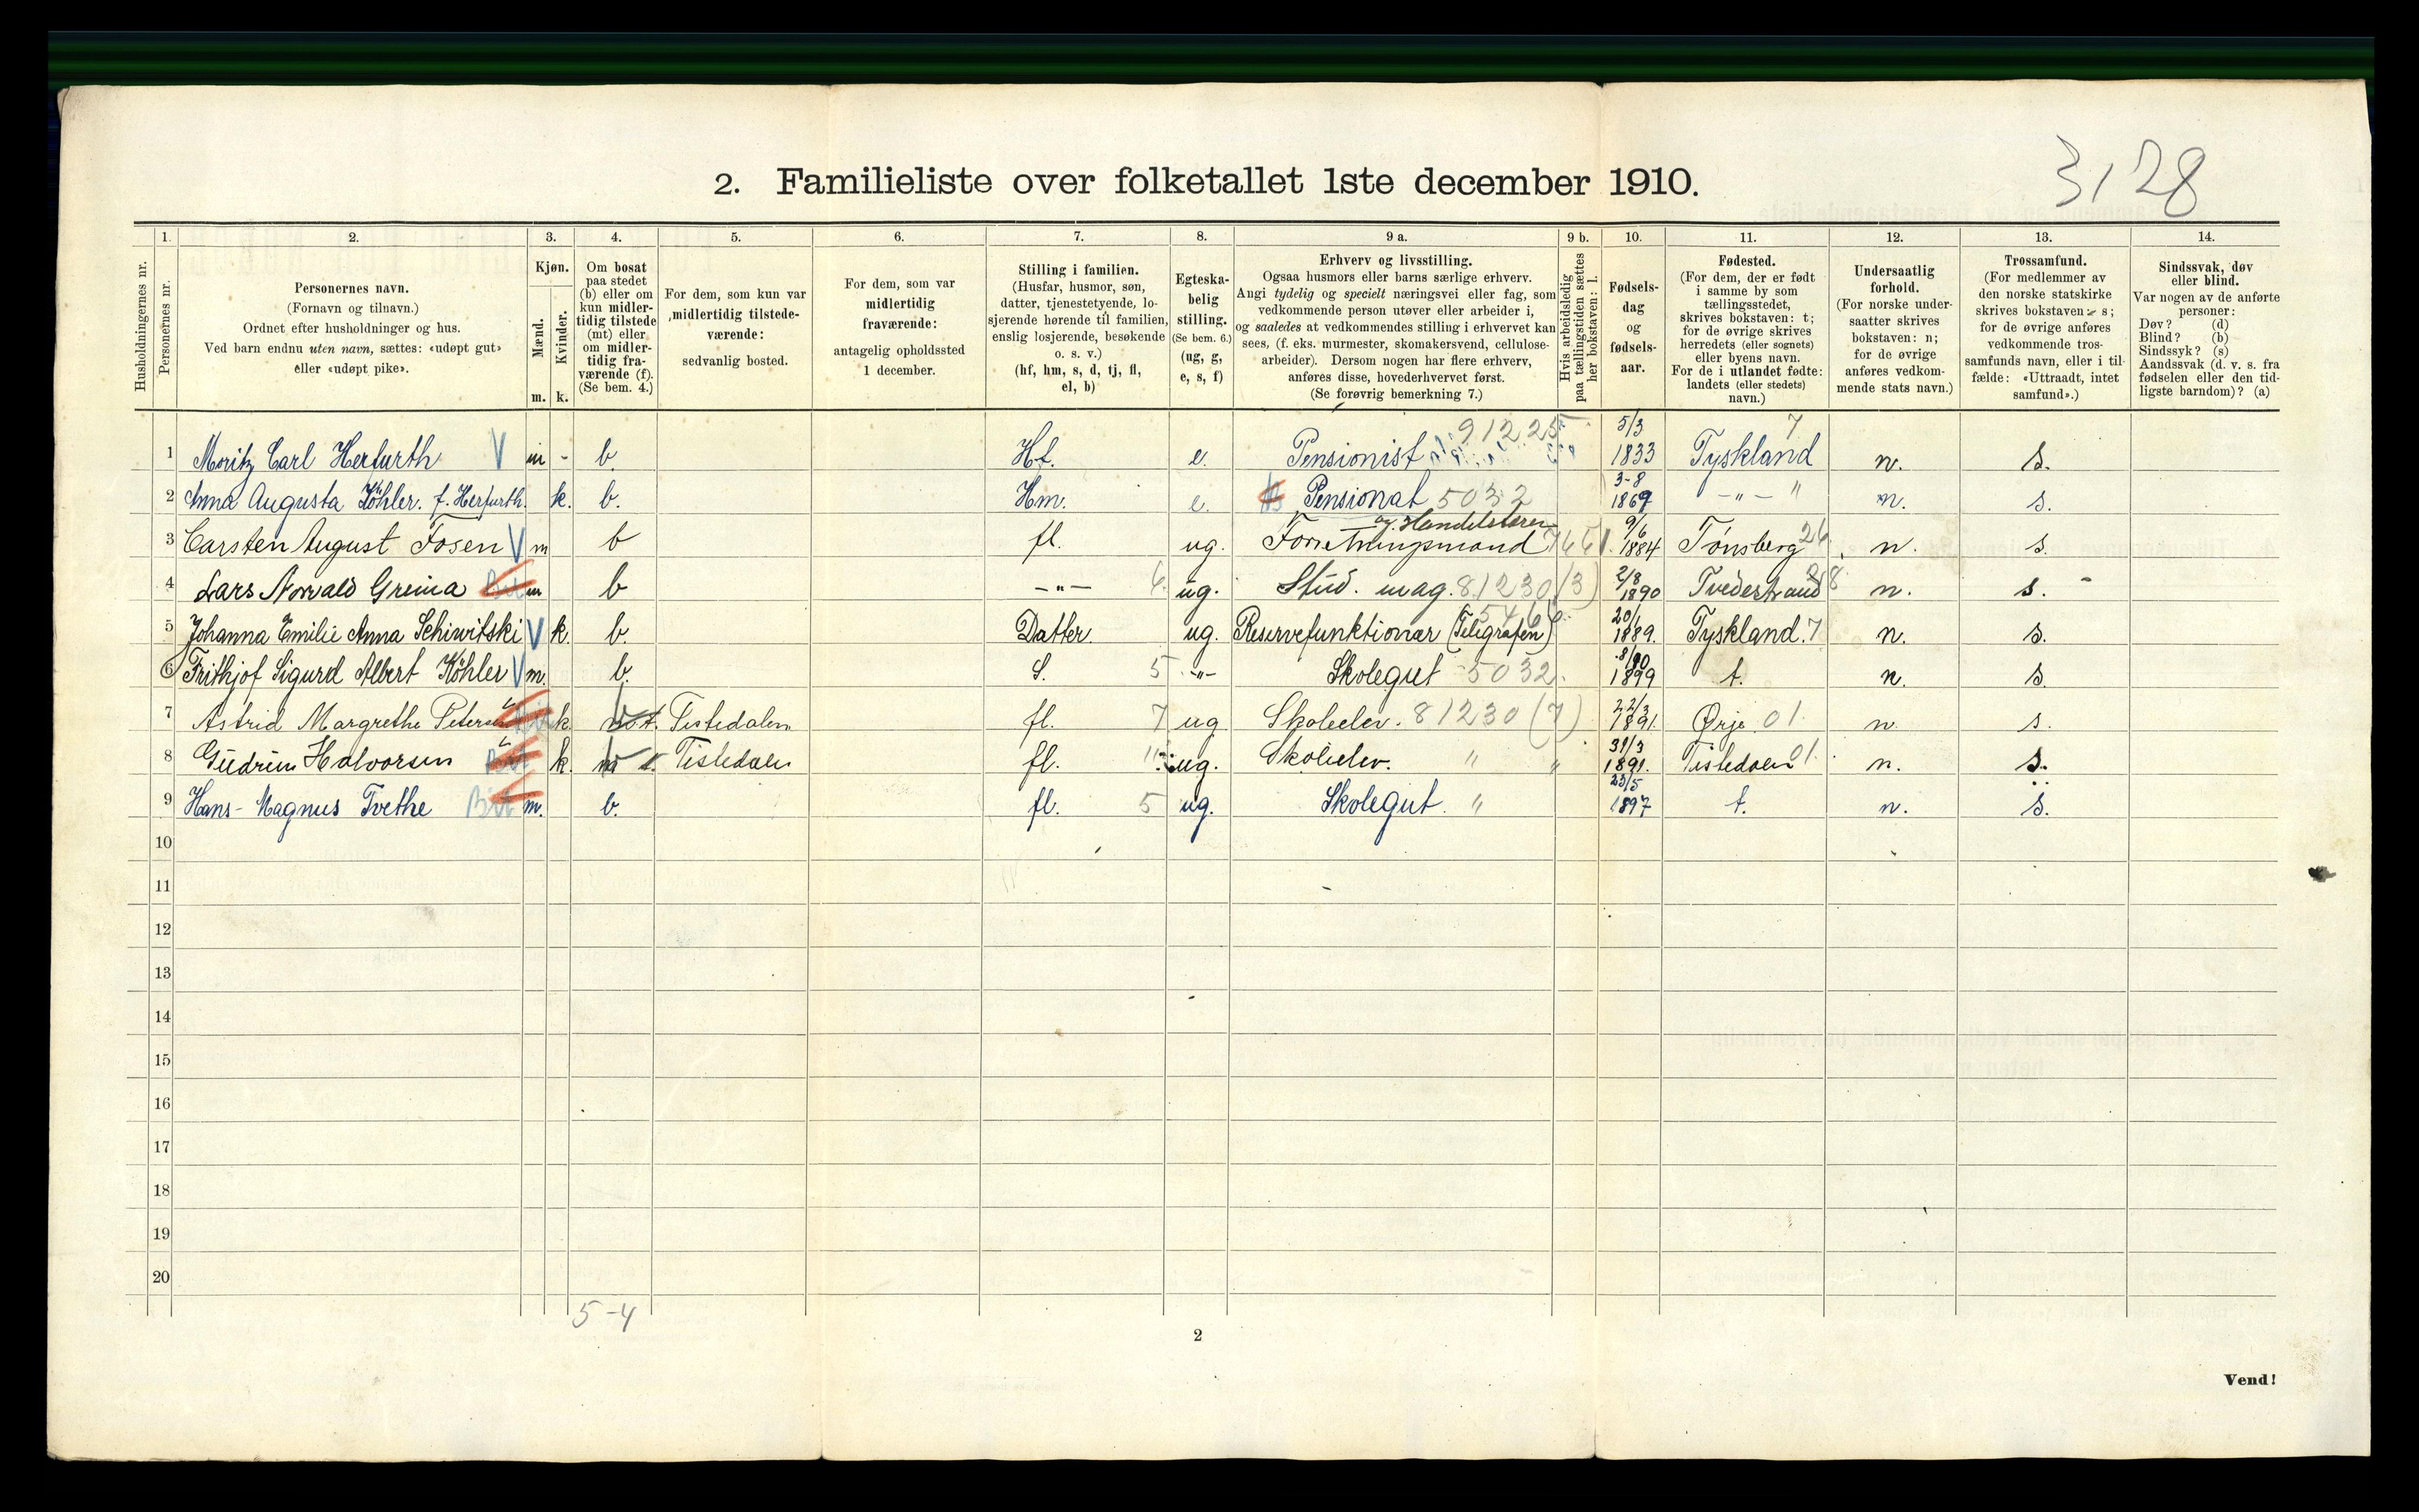 3128
2. Familieliste over folketallet 1ste december 1910.
1. 2. 3. 4. 5. 6. 7. 8. 9 a. 9 b. 10. 11. 12. 13. 14.
Husholdningernes nr.
Personernes nr.
Personernes navn.
(Fornavn og tilnavn.)
Ordnet efter husholdninger og hus.
Ved barn endnu uten navn, sættes: «udøpt gut»
eller «udøpt pike».
Kjøn.
Mænd.
Kvinder.
m. k.
Om bosat
paa stedet
(b) eller om
kun midler-
tidig tilstede
(mt) eller
om midler-
tidig fra-
værende (f).
(Se bem. 4.)
For dem, som kun var
midlertidig tilstede-
værende:
sedvanlig bosted.
For dem, som var
midlertidig
fraværende:
antagelig opholdssted
1 december.
Stilling i familien.
(Husfar, husmor, søn,
datter, tjenestetyende, lo-
sjerende hørende til familien,
enslig losjerende, besøkende
o. s. v.)
(hf, hm, s, d, tj, fl,
el, b)
Egteska-
belig
stilling.
(Se bem. 6.)
(ug, g,
e, s, f)
Erhverv og livsstilling.
Ogsaa husmors eller barns særlige erhverv.
Angi tydelig og specielt næringsvei eller fag, som
vedkommende person utøver eller arbeider i,
og saaledes at vedkommendes stilling i erhvervet kan
sees, (f. eks. murmester, skomakersvend, cellulose-
arbeider). Dersom nogen har flere erhverv,
anføres disse, hovederhvervet først.
(Se forøvrig bemerkning 7.)
Hvis arbeidsledig
paa tællingstiden sættes
her bokstaven: l.
Fødsels-
dag
og
fødsels-
aar.
Fødested.
(For dem, der er født
i samme by som
tællingsstedet,
skrives bokstaven: t;
for de øvrige skrives
herredets (eller sognets)
eller byens navn.
For de i utlandet fødte:
landets (eller stedets)
navn.)
Undersaatlig
forhold.
(For norske under-
saatter skrives
bokstaven: n;
for de øvrige
anføres vedkom-
mende stats navn.)
Trossamfund.
(For medlemmer av
den norske statskirke
skrives bokstaven: s;
for de øvrige anføres
vedkommende tros-
samfunds navn, eller i til-
fælde: «Uttraadt, intet
samfund».)
Sindssvak, døv
eller blind.
Var nogen av de anførte
personer:
Døv? (d)
Blind? (b)
Sindssyk? (s)
Aandssvak (d. v. s. fra
fødselen eller den tid-
ligste barndom)? (a)
1 Moritz Carl Herfurth V m - b. Hf. e. Pensionist 91225 5/3 1833 Tyskland 7 n. s.
2 Anna Augusta Köhler. f. Herfurth. k. b. Hm. e. Pensionat 5032 3-8 1869 -"- " n. s.
3 Carsten August Fosen V m b fl. ug. Forretningsmand og Handelslærer 9/6 1884 Tønsberg 26 n. s.
4 Lars Norvald Greina m b -"- 6 ug. Stud. mag. 81230 (3) 2/8 1890 Tvedestrand n. s.
5 Johanna Emilie Anna Schiwitski V k. b. Datter. ug. Reservefunktionær (Telegrafen) 20/1 1889. Tyskland. 7 n. s.
6 Frithjof Sigurd Albert Köhler V m. b. S. 5 -"- Skolegut 5032 8/10 1899 t. n. s.
7 Astrid Margrethe Petersen k. b Tistedalen fl. 7 ug Skoleelev. 81230 (7) 22/3 1891. Ørje 01. n. s.
8 Gudrun Halvorsen k. b Tistedalen fl. " ug. Skoleelev. " " 31/3 1891. Tistedalen 01. n. s.
9 Hans-Magnus Tvethe m. b. fl. 5 ug. Skolegut. " 23/5 1897 t. n. s.
10
11
12
13
14
15
16
17
18
19
20
5-4
2
Vend!